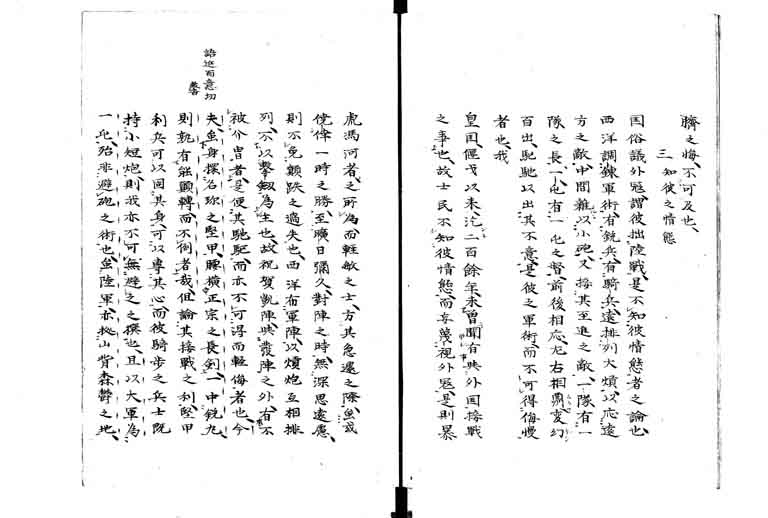 臍之悔、不可及也、
三　知彼之情態
国俗議外冦、謂彼拙陸戰、是不知彼情態者之論也、
西洋調錬軍術、有銃兵、有騎兵、遠排列大熕、以応遠
方之敵、中間雜以小砲、又接其至進之敵、一隊有一
隊之長、一屯有一屯之督、前後相応、左右相顧、変幻
百出、馳馳以出其不意、是彼之軍術、而不可得侮慢
者也、我
皇国偃戈以来、汔二百餘年、未曽聞有與外国接戰
之事也、故士民不知彼情態、而妄蔑視外冦、是則暴
虎馮河者之所為、而軽敏之士、方其急遽之際、或
僥倖一時之勝、至曠日彌久、對陣之時、無深思遠慮、
則不免顛跌之過失也、西洋布軍陣、以熕炮互相排
列、不以撃劔為主也、故祝賀凱陣與發陣之外、有不
被介冑者、是便其馳駆、而亦不可得而軽侮者也、今
夫身擐名珎之堅甲、腰横正宗之長剣、一中銃丸、
則孰有能顧轉而不倒者哉、但論其接戰之利、堅甲
利兵可以固其身、可以專其心、而彼騎歩之兵士、既
持小短炮、則我亦不可無避之之撰也、且以大軍為
一屯、殆非避砲之術也、陸軍亦挾山背森鬱之地、